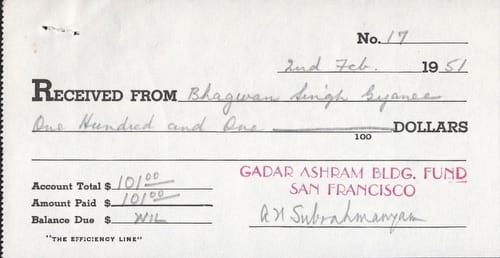 No. 17
2nd Feb. 1951
RECEIVED FROM Bhagwan Singh Gyanee
One Hundred and One 100 DOLLARS
GADAR ASHRAM BLDG. FUND
SAN FRANCISCO
Account Total $ 101.00
Amount Paid $ 101.00
Balance Due $ NIL
A N Subrahmanyam
"THE EFFICIENCY LINE"